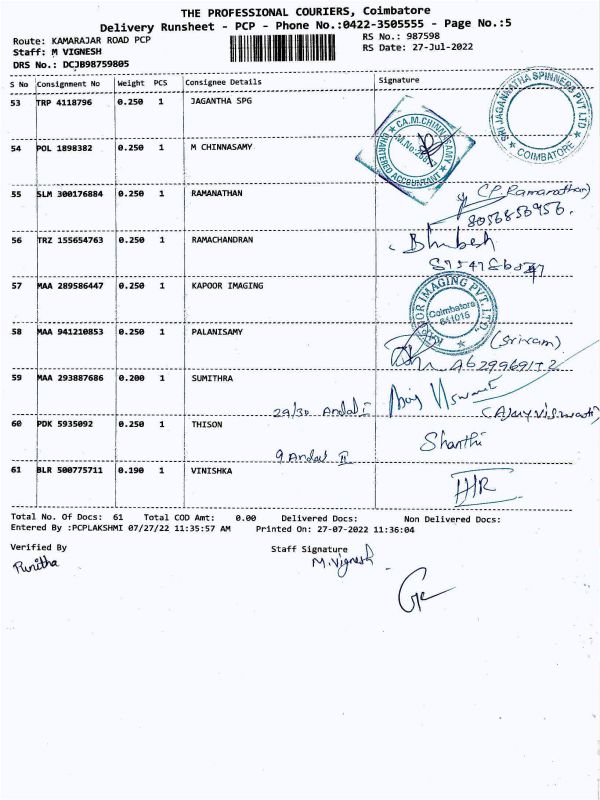 THE PROFESSIONAL COURIERS, Coimbatore
Delivery Runsheet - PCP - Phone No.:0422-3505555 - Page No.:5
Route: KAMARAJAR ROAD PCP RS No.: 987598
Staff: M VIGNESH RS Date: 27-Jul-2022
DRS No.: DCJB98759805
S No Consignment No Weight PCS Consignee Details Signature
53 TRP 4118796 0.250 1 JAGANTHA SPG
SRI JAGANNATHA SPINNERS PVT LTD
COIMBATORE
CA.M.CHINNASAMY
CHARTERED ACCOUNTANT
54 POL 1898382 0.250 1 M CHINNASAMY
55 SLM 300176884 0.250 1 RAMANATHAN
(P. Ramanathan)
8056850956.
56 TRZ 155654763 0.250 1 RAMACHANDRAN
57 MAA 289586447 0.250 1 KAPOOR IMAGING
KAPOOR IMAGING PVT. LTD.
Coimbatore
641015
58 MAA 941210853 0.250 1 PALANISAMY
(Sriram)
59 MAA 293887686 0.200 1 SUMITHRA
29/30 Andal I
60 PDK 5935092 0.250 1 THISON
Shanthi
9 Andal II
61 BLR 500775711 0.190 1 VINISHKA
Total No. Of Docs: 61 Total COD Amt: 0.00 Delivered Docs: Non Delivered Docs:
Entered By :PCPLAKSHMI 07/27/22 11:35:57 AM Printed On: 27-07-2022 11:36:04
Verified By Staff Signature
Punitha M.Vignesh